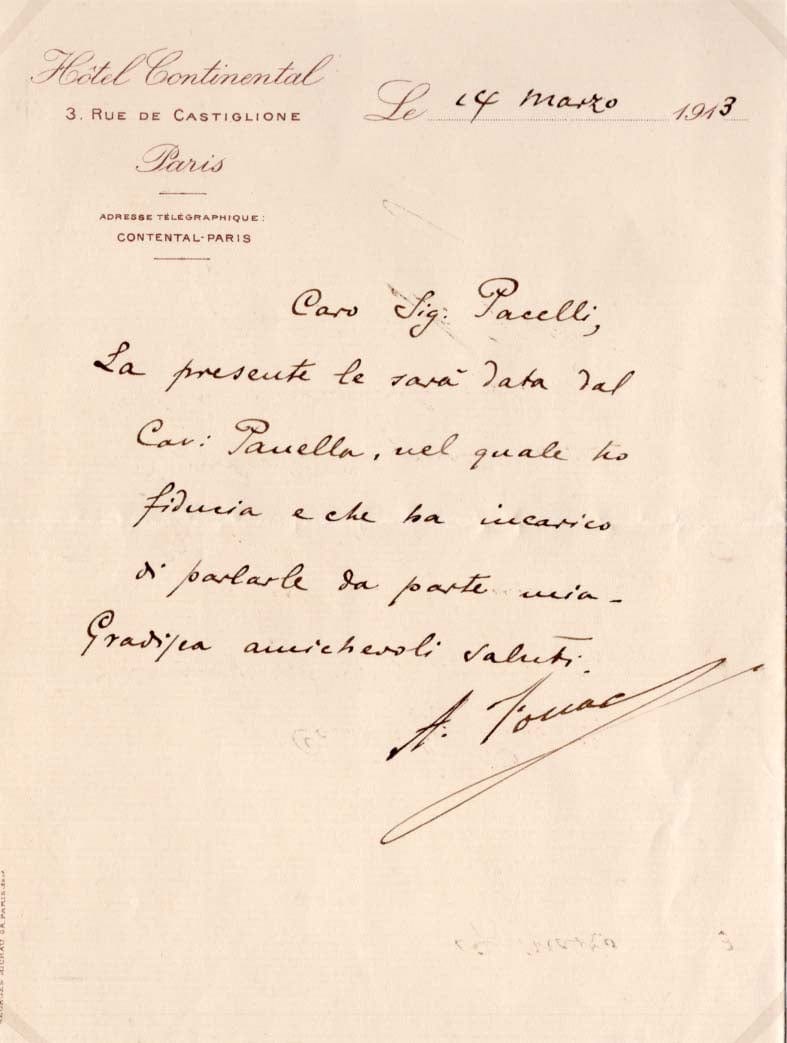 Hôtel Continental
3. RUE DE CASTIGLIONE
Paris
ADRESSE TÉLÉGRAPHIQUE:
CONTENTAL-PARIS
Le 14 Marzo 1913
Caro Sig. Pacelli,
La presente le sarà data dal
Cav: Panella, nel quale ho
fiducia e che ha incarico
di parlarle da parte mia -
Gradisca amichevoli saluti.
A.